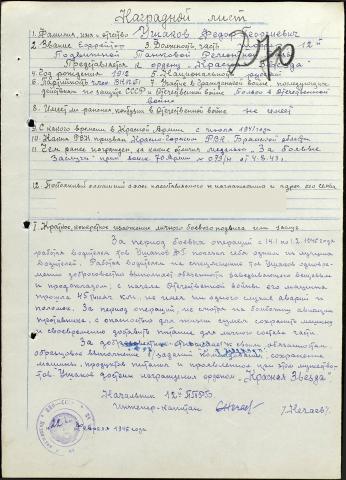 Наградной лист
1. Фамилия, имя и отчество Ушаков Федор Федорович
2. Звание Ефрейтор 3. Должность, часть 12ой
Подвижной Танковой
Представляется к ордену "Красная Звезда"
4. Год рождения 1912 5. Национальность русский
6. Партийность член ВКП(б) 7. Участие в Гражданской войне, последующих
действиях по защите СССР и Отечественной войне Только в Отечественной
войне
8. Имеет ли ранения контузии в Отечественной войне не имеет
9. С какого времени в Красной Армии с июля 1941 года
10. Каким РВК призван РВК области
11. Чем ранее награжден за какие отличия медалью "За боевые
Заслуги" 70 Армии от 4.8.43 г.
12. Постоянный домашний адрес и адрес его семьи
I. Краткое, конкретное изложение личного боевого подвига или заслуг
За период боевых операций с 14.1 по 1.2 1945 года
работая водителем тов Ушаков Ф.Ф. показал себя одним из лучших
водителей. Работая водителем тов Ушаков одновре-
менно добросовестно выполняет обязанности заведывающего вещевым
и продскладом, с начала Отечественной войны его машина
прошла 45 тысяч км, не имея ни одного случая аварии и
поломок. За период операций, не смотря на бомбежку авиации
противника, с опасностью для жизни сумел сохранить машину
и своевременно доставить питание для личного состава части.
За
образцовое выполнение заданий командования, сохранение
машины, продуктов питания и проявленное при этом мужество
тов. Ушаков достоин награждения орденом "Красная Звезда".
Начальник 12ой
Инженер-Капитан /Нечаев/
22 февраля 1945 года